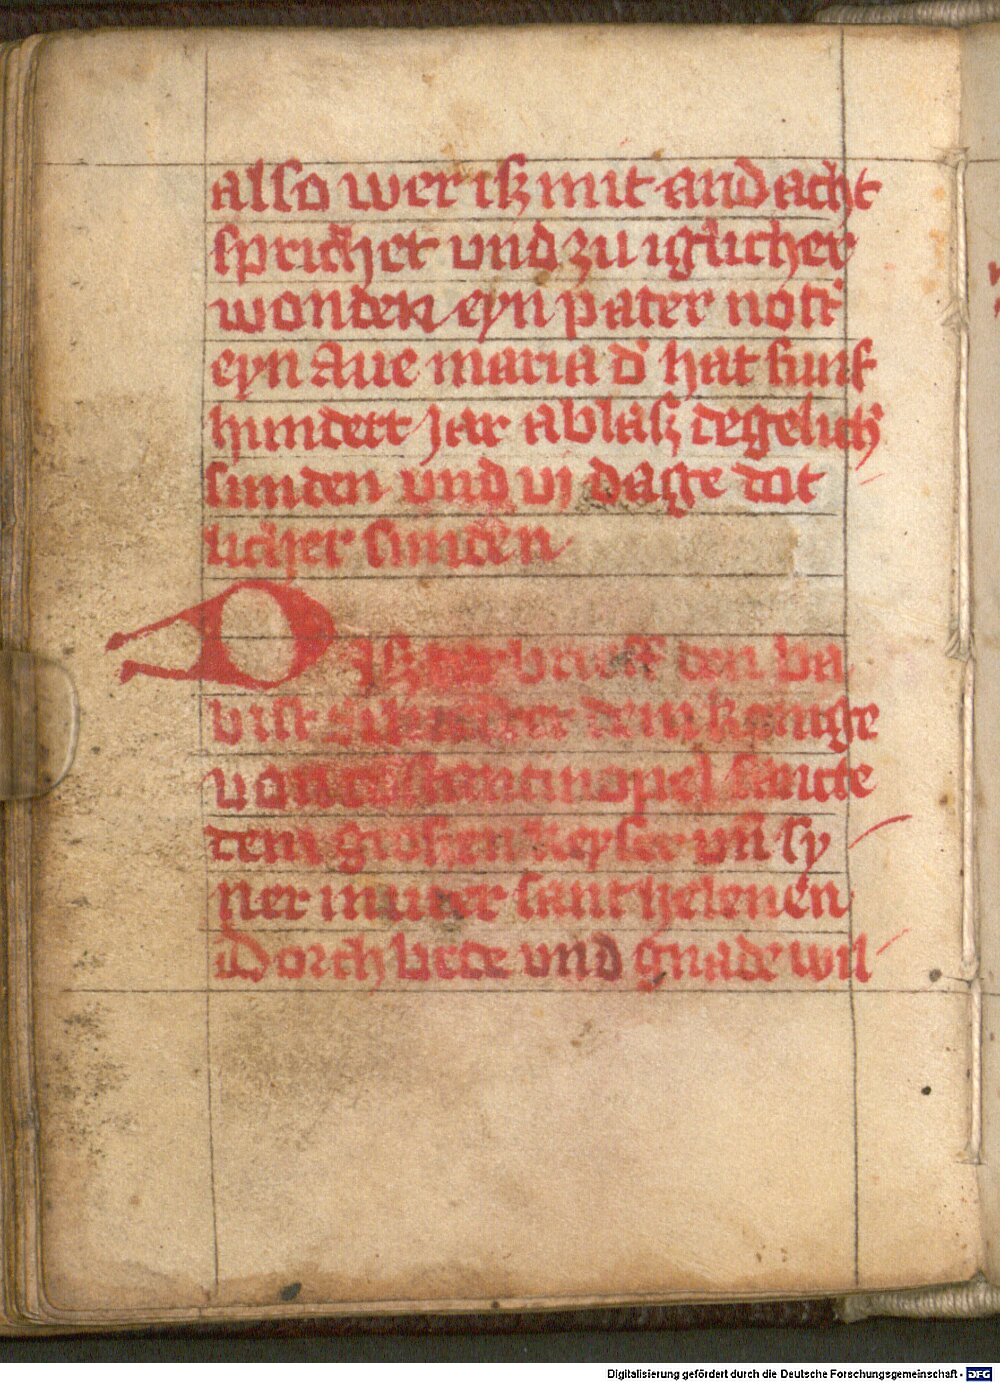 also wer isz mit andacht
sprichet vnd zu iglicher
wonden eyn pater nost̉
eyn Aue maria d̉ hat funf
hundert jar ablasz degelich̉
sunden vnd vj dage dot
licher sunden
Disz brieff den ba
bist dem konige
von constantinopel sancte
dem groszen keyser vn̄ sy
ner mutter sant helenen
Dorch bede vnd gnade wil
Digitalisierung gefördert durch die Deutsche Forschungsgemeinschaft - DFG